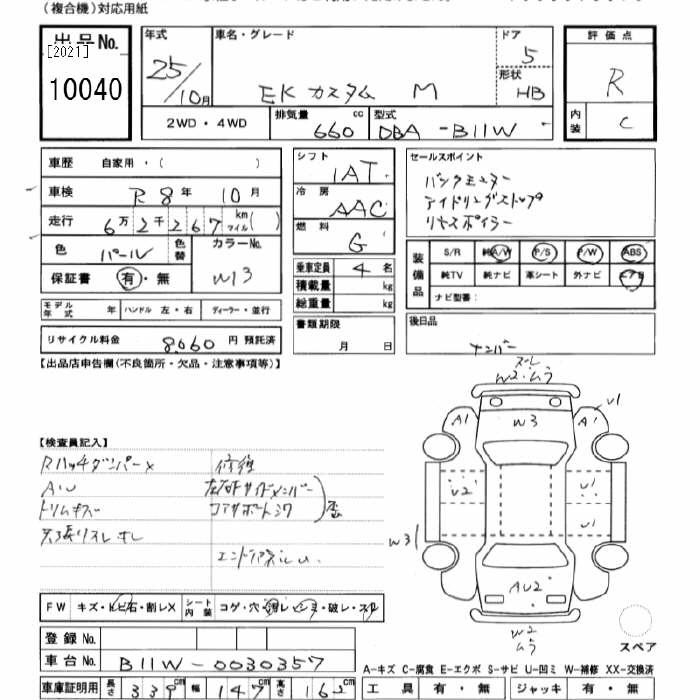 (複合機)対応用紙
出品No.
[2021]
10040
年式
25/10月
車名・グレード
EKカスタム M
ドア
5
形状
HB
評価点
R
内装
C
2WD・4WD
排気量
660 cc
型式
DBA-B11W
車歴 自家用・(     )
車検 R8年10月
走行 6万2千267 km マイル( )
色 パール
色替
カラーNo.
W13
保証書 有・無
モデル年式 年 ハンドル 左・右 ディーラー・並行
リサイクル料金 8,060 円 預託済
シフト
IAT
冷房
AAC
燃料
G
乗車定員 4 名
積載量 kg
総重量 kg
書類期限
月 日
セールスポイント
バックモニター
アイドリングストップ
リヤスポイラー
装備品
S/R 純A/W P/S P/W ABS
純TV 純ナビ 革シート 外ナビ エアB
ナビ型番:
後日品
ナンバー
【出品店申告欄(不良箇所・欠品・注意事項等)】
【検査員記入】
Rハッチダンパー×
AW
トリムキズ
天張りスレ
修復
サイドメンバー
コアサポート
歪
F W キズ・トビ石・割レX シート内装 コゲ・穴・切レ・シミ・破レ・スレ
登録No.
車台No. B11W-0030357
車庫証明用 長さ 339cm 幅 147cm 高さ 16 cm
スレ
W2・ムラ
W3
A1
A1
U1
U2
U1
U1
W3
AU2
W2
ムラ
スペア
A-キズ C-腐食 E-エクボ S-サビ U-凹ミ W-補修 XX-交換済
工具 有・無 ジャッキ 有・無